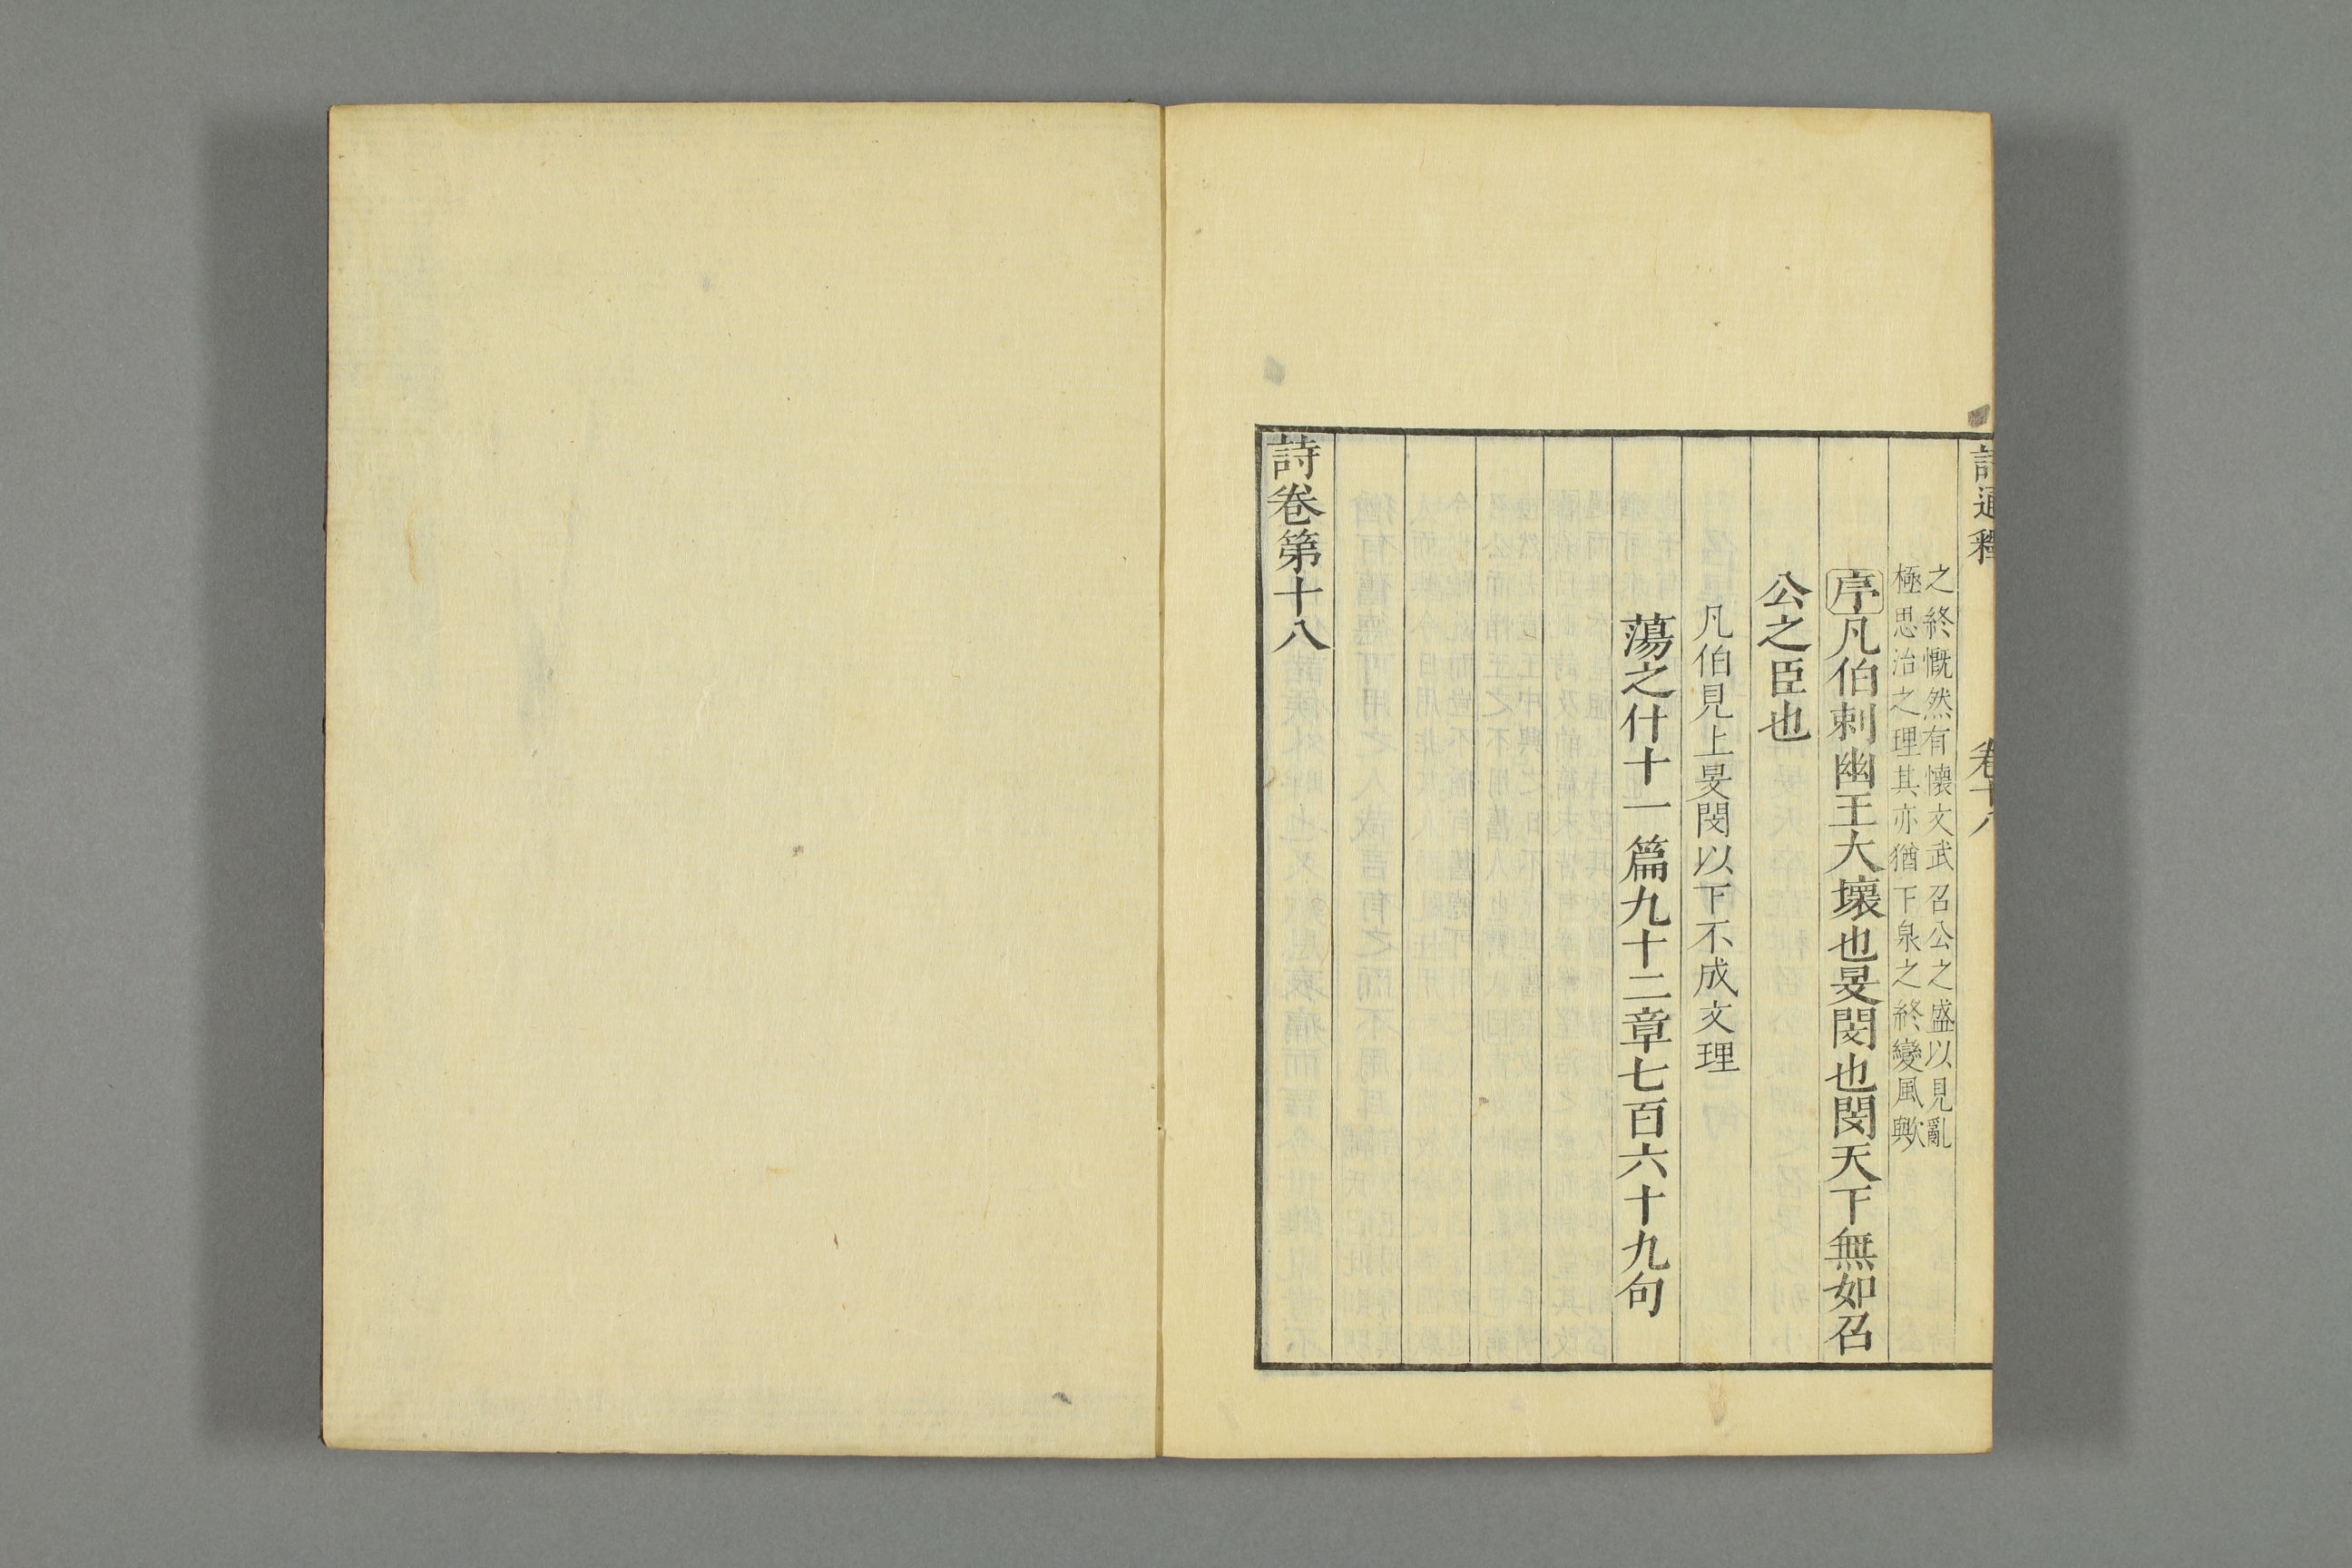 詩通釋 卷十八
之終慨然有懷文武召公之盛以見亂
極思治之理其亦猶下泉之終變風歟
序凡伯刺幽王大壞也旻閔也閔天下無如召
公之臣也
凡伯見上旻閔以下不成文理
蕩之什十一篇九十二章七百六十九句
詩卷第十八